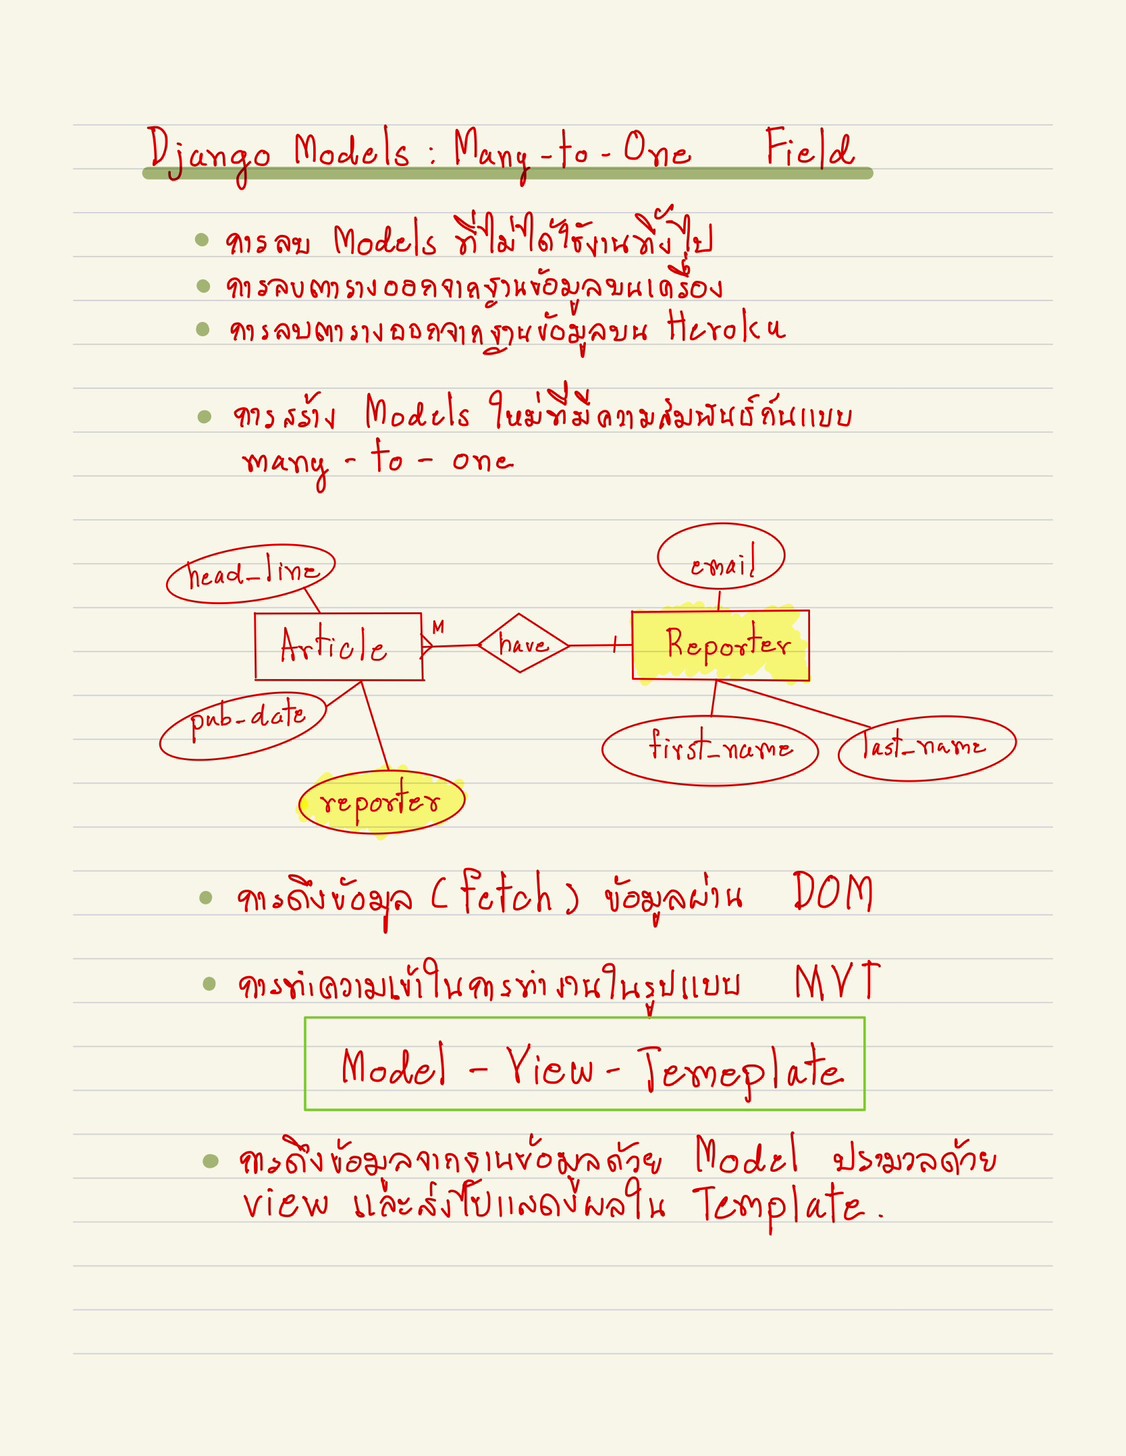 Django Models : Many-to-One Field
การลบ Models ที่ไม่ได้ใช้งานทิ้งไป
การลบตารางออกจากฐานข้อมูลบนเครื่อง
การลบตารางออกจากฐานข้อมูลบน Heroku
การสร้าง Models ใหม่ที่มีความสัมพันธ์กันแบบ
many - to - one
email
head_line
Article
M
have
Reporter
pub-date
first_name
last_name
reporter
การดึงข้อมูล (fetch) ข้อมูลผ่าน DOM
การทำความเข้าในการทำงานในรูปแบบ MVT
Model - View - Temeplate
การดึงข้อมูลจากฐานข้อมูลด้วย Model ประมวลด้วย
view และส่งไปแสดงผลใน Template.